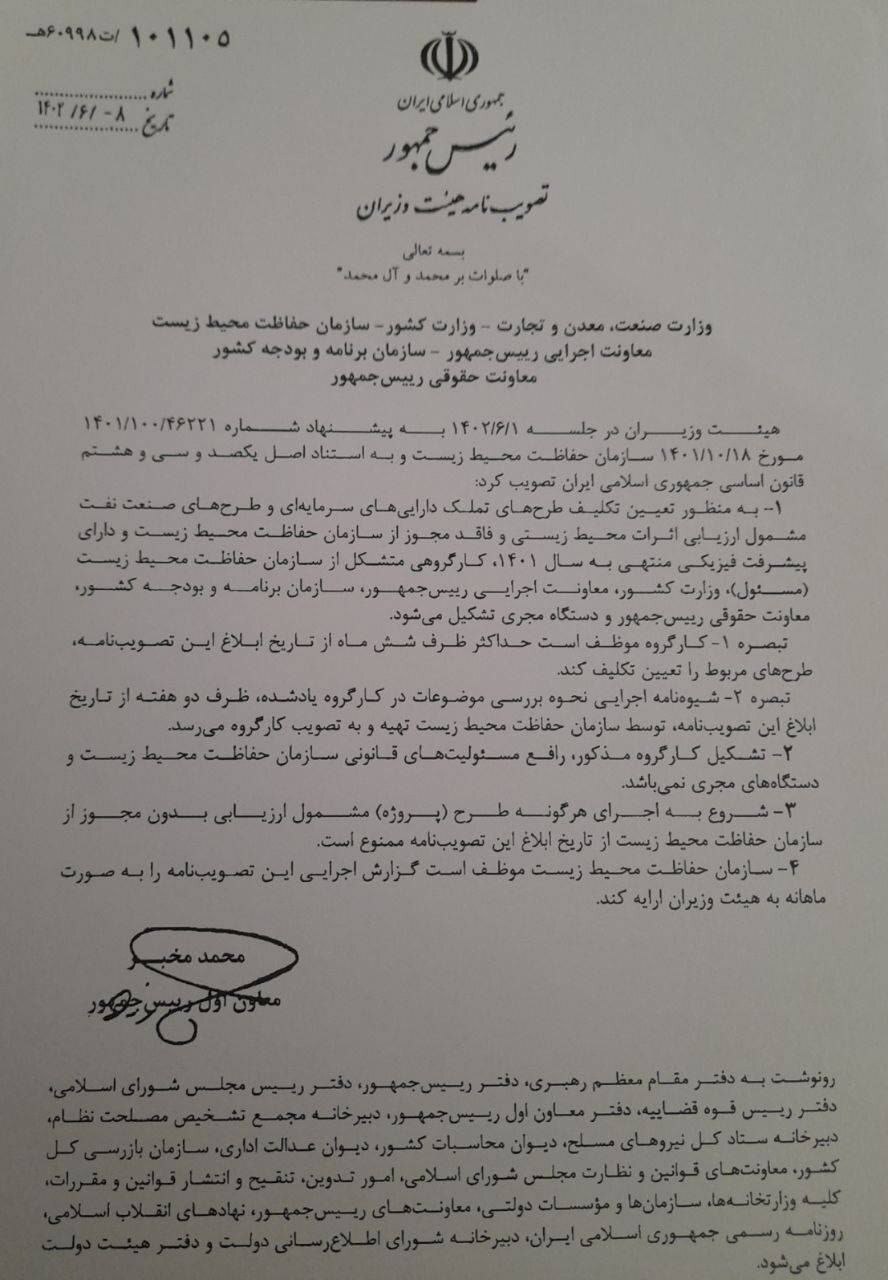 ۱۰۱۱۰۵ /ت۶۰۹۹۸هـ
شماره
تاریخ ۱۴۰۲/۶/-۸
جمهوری اسلامی ایران
رئیس جمهور
تصویب نامه هیئت وزیران
بسمه تعالی
"با صلوات بر محمد و آل محمد"
وزارت صنعت، معدن و تجارت - وزارت کشور - سازمان حفاظت محیط زیست
معاونت اجرایی رییس‌جمهور - سازمان برنامه و بودجه کشور
معاونت حقوقی رییس‌جمهور
هیئت وزیران در جلسه ۱۴۰۲/۶/۱ به پیشنهاد شماره ۱۴۰۱/۱۰۰/۴۶۲۲۱
مورخ ۱۴۰۱/۱۰/۱۸ سازمان حفاظت محیط زیست و به استناد اصل یکصد و سی و هشتم
قانون اساسی جمهوری اسلامی ایران تصویب کرد:
۱- به منظور تعیین تکلیف طرح‌های تملک دارایی‌های سرمایه‌ای و طرح‌های صنعت نفت
مشمول ارزیابی اثرات محیط زیستی و فاقد مجوز از سازمان حفاظت محیط زیست و دارای
پیشرفت فیزیکی منتهی به سال ۱۴۰۱، کارگروهی متشکل از سازمان حفاظت محیط زیست
(مسئول)، وزارت کشور، معاونت اجرایی رییس‌جمهور، سازمان برنامه و بودجه کشور،
معاونت حقوقی رییس‌جمهور و دستگاه مجری تشکیل می‌شود.
تبصره ۱- کارگروه موظف است حداکثر ظرف شش ماه از تاریخ ابلاغ این تصویب‌نامه،
طرح‌های مربوط را تعیین تکلیف کند.
تبصره ۲- شیوه‌نامه اجرایی نحوه بررسی موضوعات در کارگروه یادشده، ظرف دو هفته از تاریخ
ابلاغ این تصویب‌نامه، توسط سازمان حفاظت محیط زیست تهیه و به تصویب کارگروه می‌رسد.
۲- تشکیل کارگروه مذکور، رافع مسئولیت‌های قانونی سازمان حفاظت محیط زیست و
دستگاه‌های مجری نمی‌باشد.
۳- شروع به اجرای هرگونه طرح (پروژه) مشمول ارزیابی بدون مجوز از
سازمان حفاظت محیط زیست از تاریخ ابلاغ این تصویب‌نامه ممنوع است.
۴- سازمان حفاظت محیط زیست موظف است گزارش اجرایی این تصویب‌نامه را به صورت
ماهانه به هیئت وزیران ارایه کند.
محمد مخبر
معاون اول رییس‌جمهور
رونوشت به دفتر مقام معظم رهبری، دفتر رییس‌جمهور، دفتر رییس مجلس شورای اسلامی،
دفتر رییس قوه قضاییه، دفتر معاون اول رییس‌جمهور، دبیرخانه مجمع تشخیص مصلحت نظام،
دبیرخانه ستاد کل نیروهای مسلح، دیوان محاسبات کشور، دیوان عدالت اداری، سازمان بازرسی کل
کشور، معاونت‌های قوانین و نظارت مجلس شورای اسلامی، امور تدوین، تنقیح و انتشار قوانین و مقررات،
کلیه وزارتخانه‌ها، سازمان‌ها و مؤسسات دولتی، معاونت‌های رییس‌جمهور، نهادهای انقلاب اسلامی،
روزنامه رسمی جمهوری اسلامی ایران، دبیرخانه شورای اطلاع‌رسانی دولت و دفتر هیئت دولت
ابلاغ می‌شود.